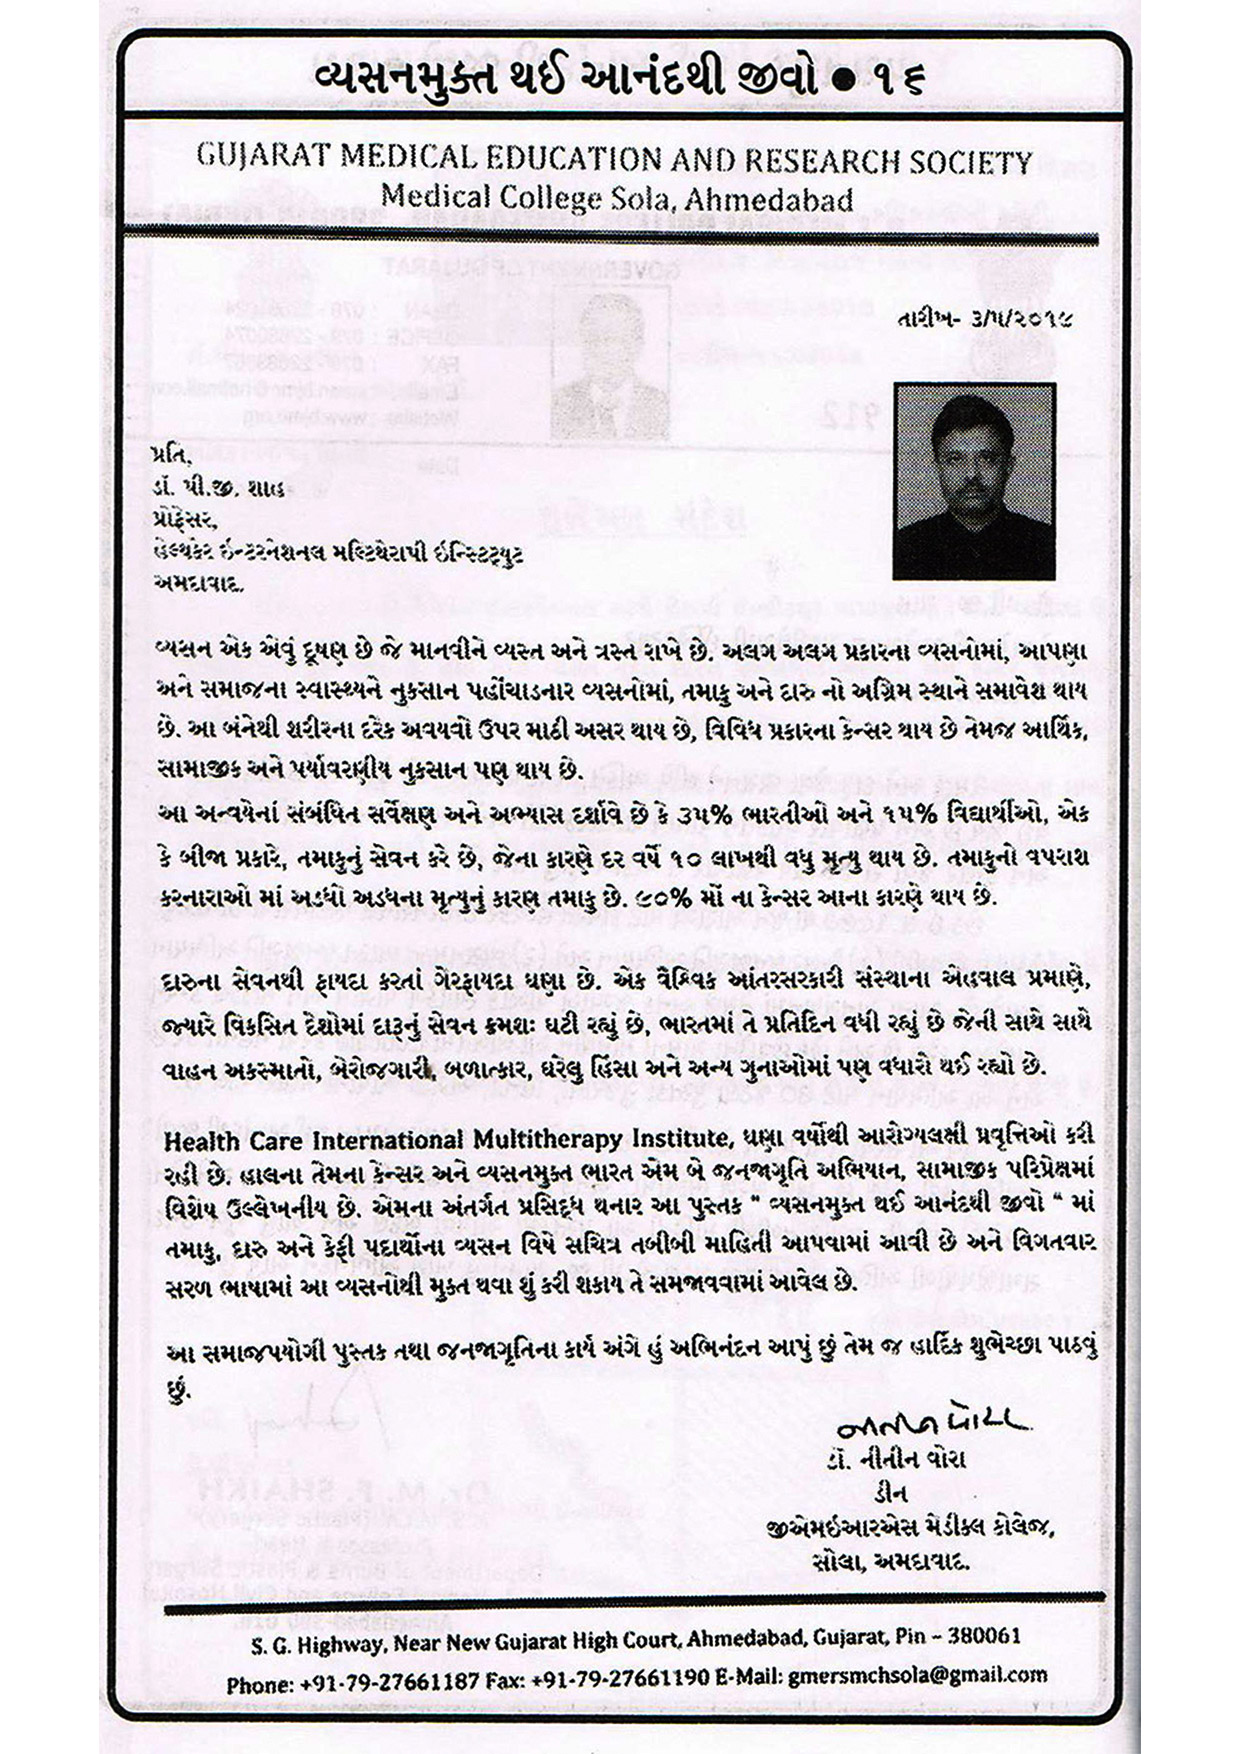 વ્યસનમુક્ત થઈ આનંદથી જીવો ● ૧૬
GUJARAT MEDICAL EDUCATION AND RESEARCH SOCIETY
Medical College Sola, Ahmedabad
તારીખ- ૩/૫/૨૦૧૯
પ્રતિ,
ડૉ. પી.જી. શાહ
પ્રોફેસર,
હેલ્થકેર ઇન્ટરનેશનલ મલ્ટિથેરાપી ઇન્સ્ટિટ્યુટ
અમદાવાદ.
વ્યસન એક એવું દૂષણ છે જે માનવીને વ્યસ્ત અને ત્રસ્ત રાખે છે. અલગ અલગ પ્રકારના વ્યસનોમાં, આપણા
અને સમાજના સ્વાસ્થ્યને નુકસાન પહોંચાડનાર વ્યસનોમાં, તમાકુ અને દારુ નો અગ્રિમ સ્થાને સમાવેશ થાય
છે. આ બંનેથી શરીરના દરેક અવયવો ઉપર માઠી અસર થાય છે, વિવિધ પ્રકારના કેન્સર થાય છે તેમજ આર્થિક,
સામાજીક અને પર્યાવરણીય નુકસાન પણ થાય છે.
આ અન્વયેનાં સંબંધિત સર્વેક્ષણ અને અભ્યાસ દર્શાવે છે કે ૩૫% ભારતીઓ અને ૧૫% વિદ્યાર્થીઓ, એક
કે બીજા પ્રકારે, તમાકુનું સેવન કરે છે, જેના કારણે દર વર્ષે ૧૦ લાખથી વધુ મૃત્યુ થાય છે. તમાકુનો વપરાશ
કરનારાઓ માં અડધો અડધના મૃત્યુનું કારણ તમાકુ છે. ૯૦% મોં ના કેન્સર આના કારણે થાય છે.
દારુના સેવનથી ફાયદા કરતાં ગેરફાયદા ઘણા છે. એક વૈશ્વિક આંતરસરકારી સંસ્થાના અહેવાલ પ્રમાણે,
જ્યારે વિકસિત દેશોમાં દારૂનું સેવન ક્રમશઃ ઘટી રહ્યું છે, ભારતમાં તે પ્રતિદિન વધી રહ્યું છે જેની સાથે સાથે
વાહન અકસ્માતો, બેરોજગારી, બળાત્કાર, ઘરેલુ હિંસા અને અન્ય ગુનાઓમાં પણ વધારો થઈ રહ્યો છે.
Health Care International Multitherapy Institute, ઘણા વર્ષોથી આરોગ્યલક્ષી પ્રવૃત્તિઓ કરી
રહી છે. હાલના તેમના કેન્સર અને વ્યસનમુક્ત ભારત એમ બે જનજાગૃતિ અભિયાન, સામાજીક પરિપ્રેક્ષમાં
વિશેષ ઉલ્લેખનીય છે. એમના અંતર્ગત પ્રસિદ્ધ થનાર આ પુસ્તક " વ્યસનમુક્ત થઈ આનંદથી જીવો " માં
તમાકુ, દારુ અને કેફી પદાર્થોના વ્યસન વિષે સચિત્ર તબીબી માહિતી આપવામાં આવી છે અને વિગતવાર
સરળ ભાષામાં આ વ્યસનોથી મુક્ત થવા શું કરી શકાય તે સમજાવવામાં આવેલ છે.
આ સમાજપયોગી પુસ્તક તથા જનજાગૃતિના કાર્ય અંગે હું અભિનંદન આપું છું તેમ જ હાર્દિક શુભેચ્છા પાઠવું
છું.
ડૉ. નીતીન વોરા
ડીન
જીએમઇઆરએસ મેડીકલ કોલેજ,
સોલા, અમદાવાદ.
S. G. Highway, Near New Gujarat High Court, Ahmedabad, Gujarat, Pin – 380061
Phone: +91-79-27661187 Fax: +91-79-27661190 E-Mail: gmersmchsola@gmail.com